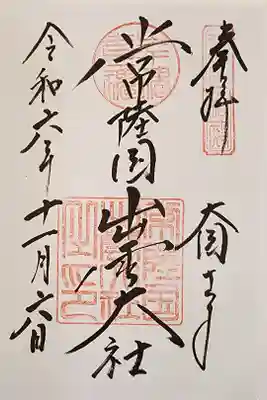 奉拝
大国さま
常陸国出雲大社
令和六年十一月六日